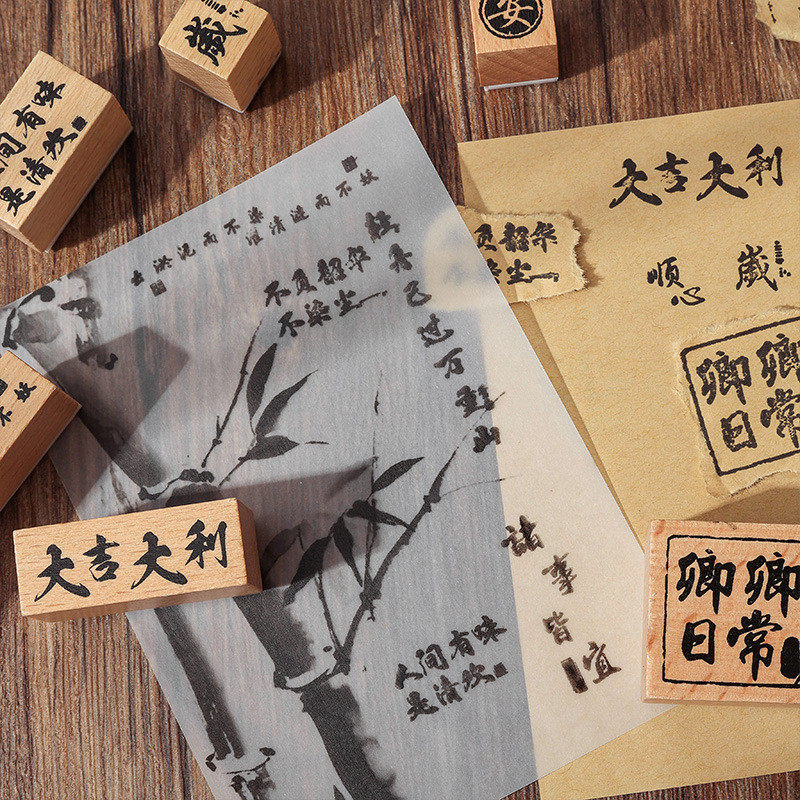 歲
安
人间有味
是清欢
大吉大利
出淤泥而不染
濯清涟而不妖
不负韶华
不染尘
轻舟已过万重山
负韶华
染尘
顺心
歲
卿卿
日常
不妖
大吉大利
諸事皆宜
人间有味
是清欢
卿卿
日常